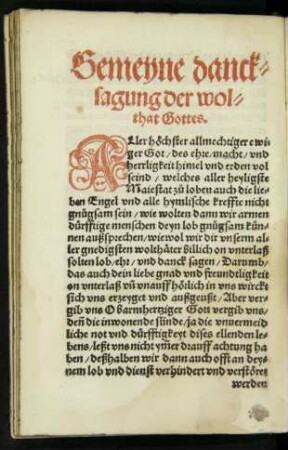 Gemeyne danck-
sagung der wol-
that Gottes.
Aller höchster allmechtiger ewi
ger Got / des ehre / macht / vnd
herrligkeit himel vnd erden vol
seind / welches aller heyligste
Maiestat zů loben auch die lie-
ben Engel vnd alle hymlische kreffte nicht
gnůgsam sein / wie wolten dann wir armen
dürfftige menschen deyn lob gnůgsam kün-
nen außsprechen / wiewol wir dir vnserm al
ler gnedigsten wolthäter billich on vnterlaß
solten lob / ehr / vnd danck sagen / Darumb /
das auch dein liebe gnad vnd freundtligkeit
on vnterlaß vñ vnauffhörlich in vns wirckt
sich vns erzeyget vnd außgeußt / Aber ver-
gib vns O barmhertziger Gott vergib vns /
deñ die inwonende sünde / ja die vnuermeid
liche not vnd dürfftigkeyt dises ellenden le-
bens / leßt vns nicht ymer drauff achtung ha
ben / deßhalben wir dann auch offt an dey-
nem lob vnd dienst verhindert vnd verstöret
werden